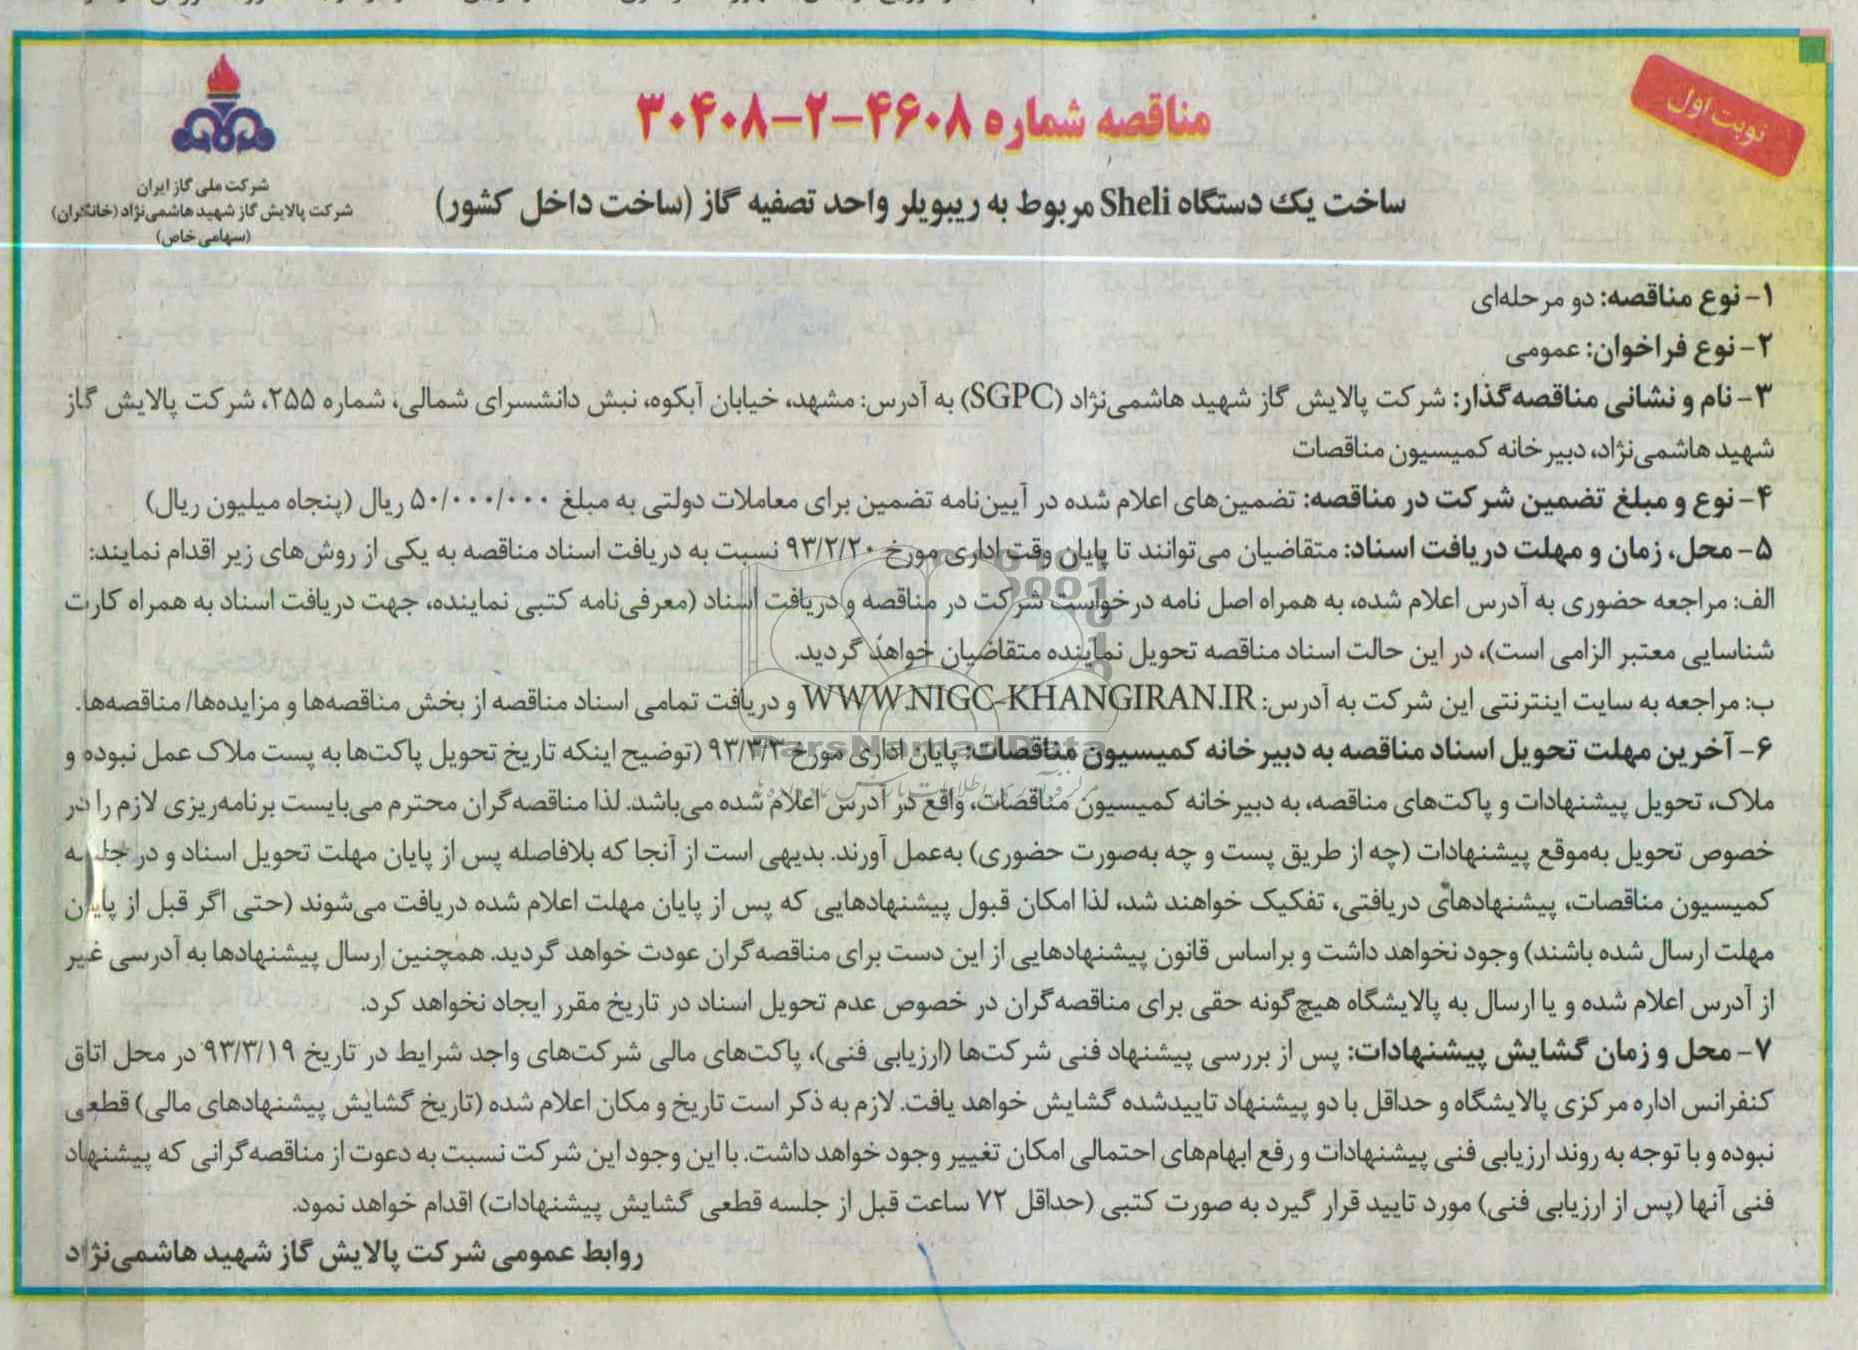 نوبت اول
مناقصه شماره ۴۶۰۸–۲–۳۰۴۰۸
شرکت ملی گاز ایران
شرکت پالایش گاز شهید هاشمی‌نژاد (خانگیران)
(سهامی خاص)
ساخت یک دستگاه Sheli مربوط به ریبویلر واحد تصفیه گاز (ساخت داخل کشور)
۱- نوع مناقصه: دو مرحله‌ای
۲- نوع فراخوان: عمومی
۳- نام و نشانی مناقصه‌گذار: شرکت پالایش گاز شهید هاشمی‌نژاد (SGPC) به آدرس: مشهد، خیابان آبکوه، نبش دانشسرای شمالی، شماره ۲۵۵، شرکت پالایش گاز
شهید هاشمی‌نژاد، دبیرخانه کمیسیون مناقصات
۴- نوع و مبلغ تضمین شرکت در مناقصه: تضمین‌های اعلام شده در آیین‌نامه تضمین برای معاملات دولتی به مبلغ ۵۰/۰۰۰/۰۰۰ ریال (پنجاه میلیون ریال)
۵- محل، زمان و مهلت دریافت اسناد: متقاضیان می‌توانند تا پایان وقت اداری مورخ ۹۳/۲/۲۰ نسبت به دریافت اسناد مناقصه به یکی از روش‌های زیر اقدام نمایند:
الف: مراجعه حضوری به آدرس اعلام شده، به همراه اصل نامه درخواست شرکت در مناقصه و دریافت اسناد (معرفی‌نامه کتبی نماینده، جهت دریافت اسناد به همراه کارت
شناسایی معتبر الزامی است)، در این حالت اسناد مناقصه تحویل نماینده متقاضیان خواهد گردید.
ب: مراجعه به سایت اینترنتی این شرکت به آدرس: WWW.NIGC-KHANGIRAN.IR و دریافت تمامی اسناد مناقصه از بخش مناقصه‌ها و مزایده‌ها/ مناقصه‌ها.
۶- آخرین مهلت تحویل اسناد مناقصه به دبیرخانه کمیسیون مناقصات: پایان اداری مورخ ۹۳/۳/۳ (توضیح اینکه تاریخ تحویل پاکت‌ها به پست ملاک عمل نبوده و
ملاک، تحویل پیشنهادات و پاکت‌های مناقصه، به دبیرخانه کمیسیون مناقصات، واقع در آدرس اعلام شده می‌باشد. لذا مناقصه‌گران محترم می‌بایست برنامه‌ریزی لازم را در
خصوص تحویل به‌موقع پیشنهادات (چه از طریق پست و چه به‌صورت حضوری) به‌عمل آورند. بدیهی است از آنجا که بلافاصله پس از پایان مهلت تحویل اسناد و در جلسه
کمیسیون مناقصات، پیشنهادهای دریافتی، تفکیک خواهند شد، لذا امکان قبول پیشنهادهایی که پس از پایان مهلت اعلام شده دریافت می‌شوند (حتی اگر قبل از پایان
مهلت ارسال شده باشند) وجود نخواهد داشت و براساس قانون پیشنهادهایی از این دست برای مناقصه‌گران عودت خواهد گردید. همچنین ارسال پیشنهادها به آدرسی غیر
از آدرس اعلام شده و یا ارسال به پالایشگاه هیچ‌گونه حقی برای مناقصه‌گران در خصوص عدم تحویل اسناد در تاریخ مقرر ایجاد نخواهد کرد.
۷- محل و زمان گشایش پیشنهادات: پس از بررسی پیشنهاد فنی شرکت‌ها (ارزیابی فنی)، پاکت‌های مالی شرکت‌های واجد شرایط در تاریخ ۹۳/۳/۱۹ در محل اتاق
کنفرانس اداره مرکزی پالایشگاه و حداقل با دو پیشنهاد تاییدشده گشایش خواهد یافت. لازم به ذکر است تاریخ و مکان اعلام شده (تاریخ گشایش پیشنهادهای مالی) قطعی
نبوده و با توجه به روند ارزیابی فنی پیشنهادات و رفع ابهام‌های احتمالی امکان تغییر وجود خواهد داشت. با این وجود این شرکت نسبت به دعوت از مناقصه‌گرانی که پیشنهاد
فنی آنها (پس از ارزیابی فنی) مورد تایید قرار گیرد به صورت کتبی (حداقل ۷۲ ساعت قبل از جلسه قطعی گشایش پیشنهادات) اقدام خواهد نمود.
روابط عمومی شرکت پالایش گاز شهید هاشمی‌نژاد